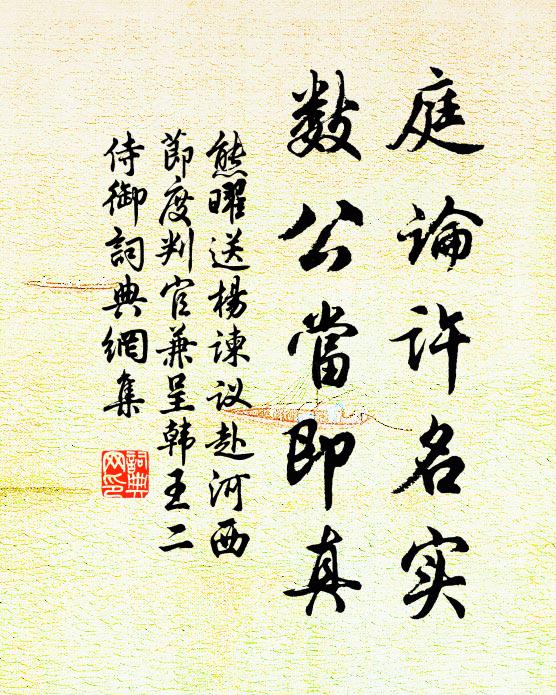 庭论许名实
数公當即真
熊曜送杨谏议赴河西
節度判官兼呈韩王二
侍御詞典網集
詞典网印